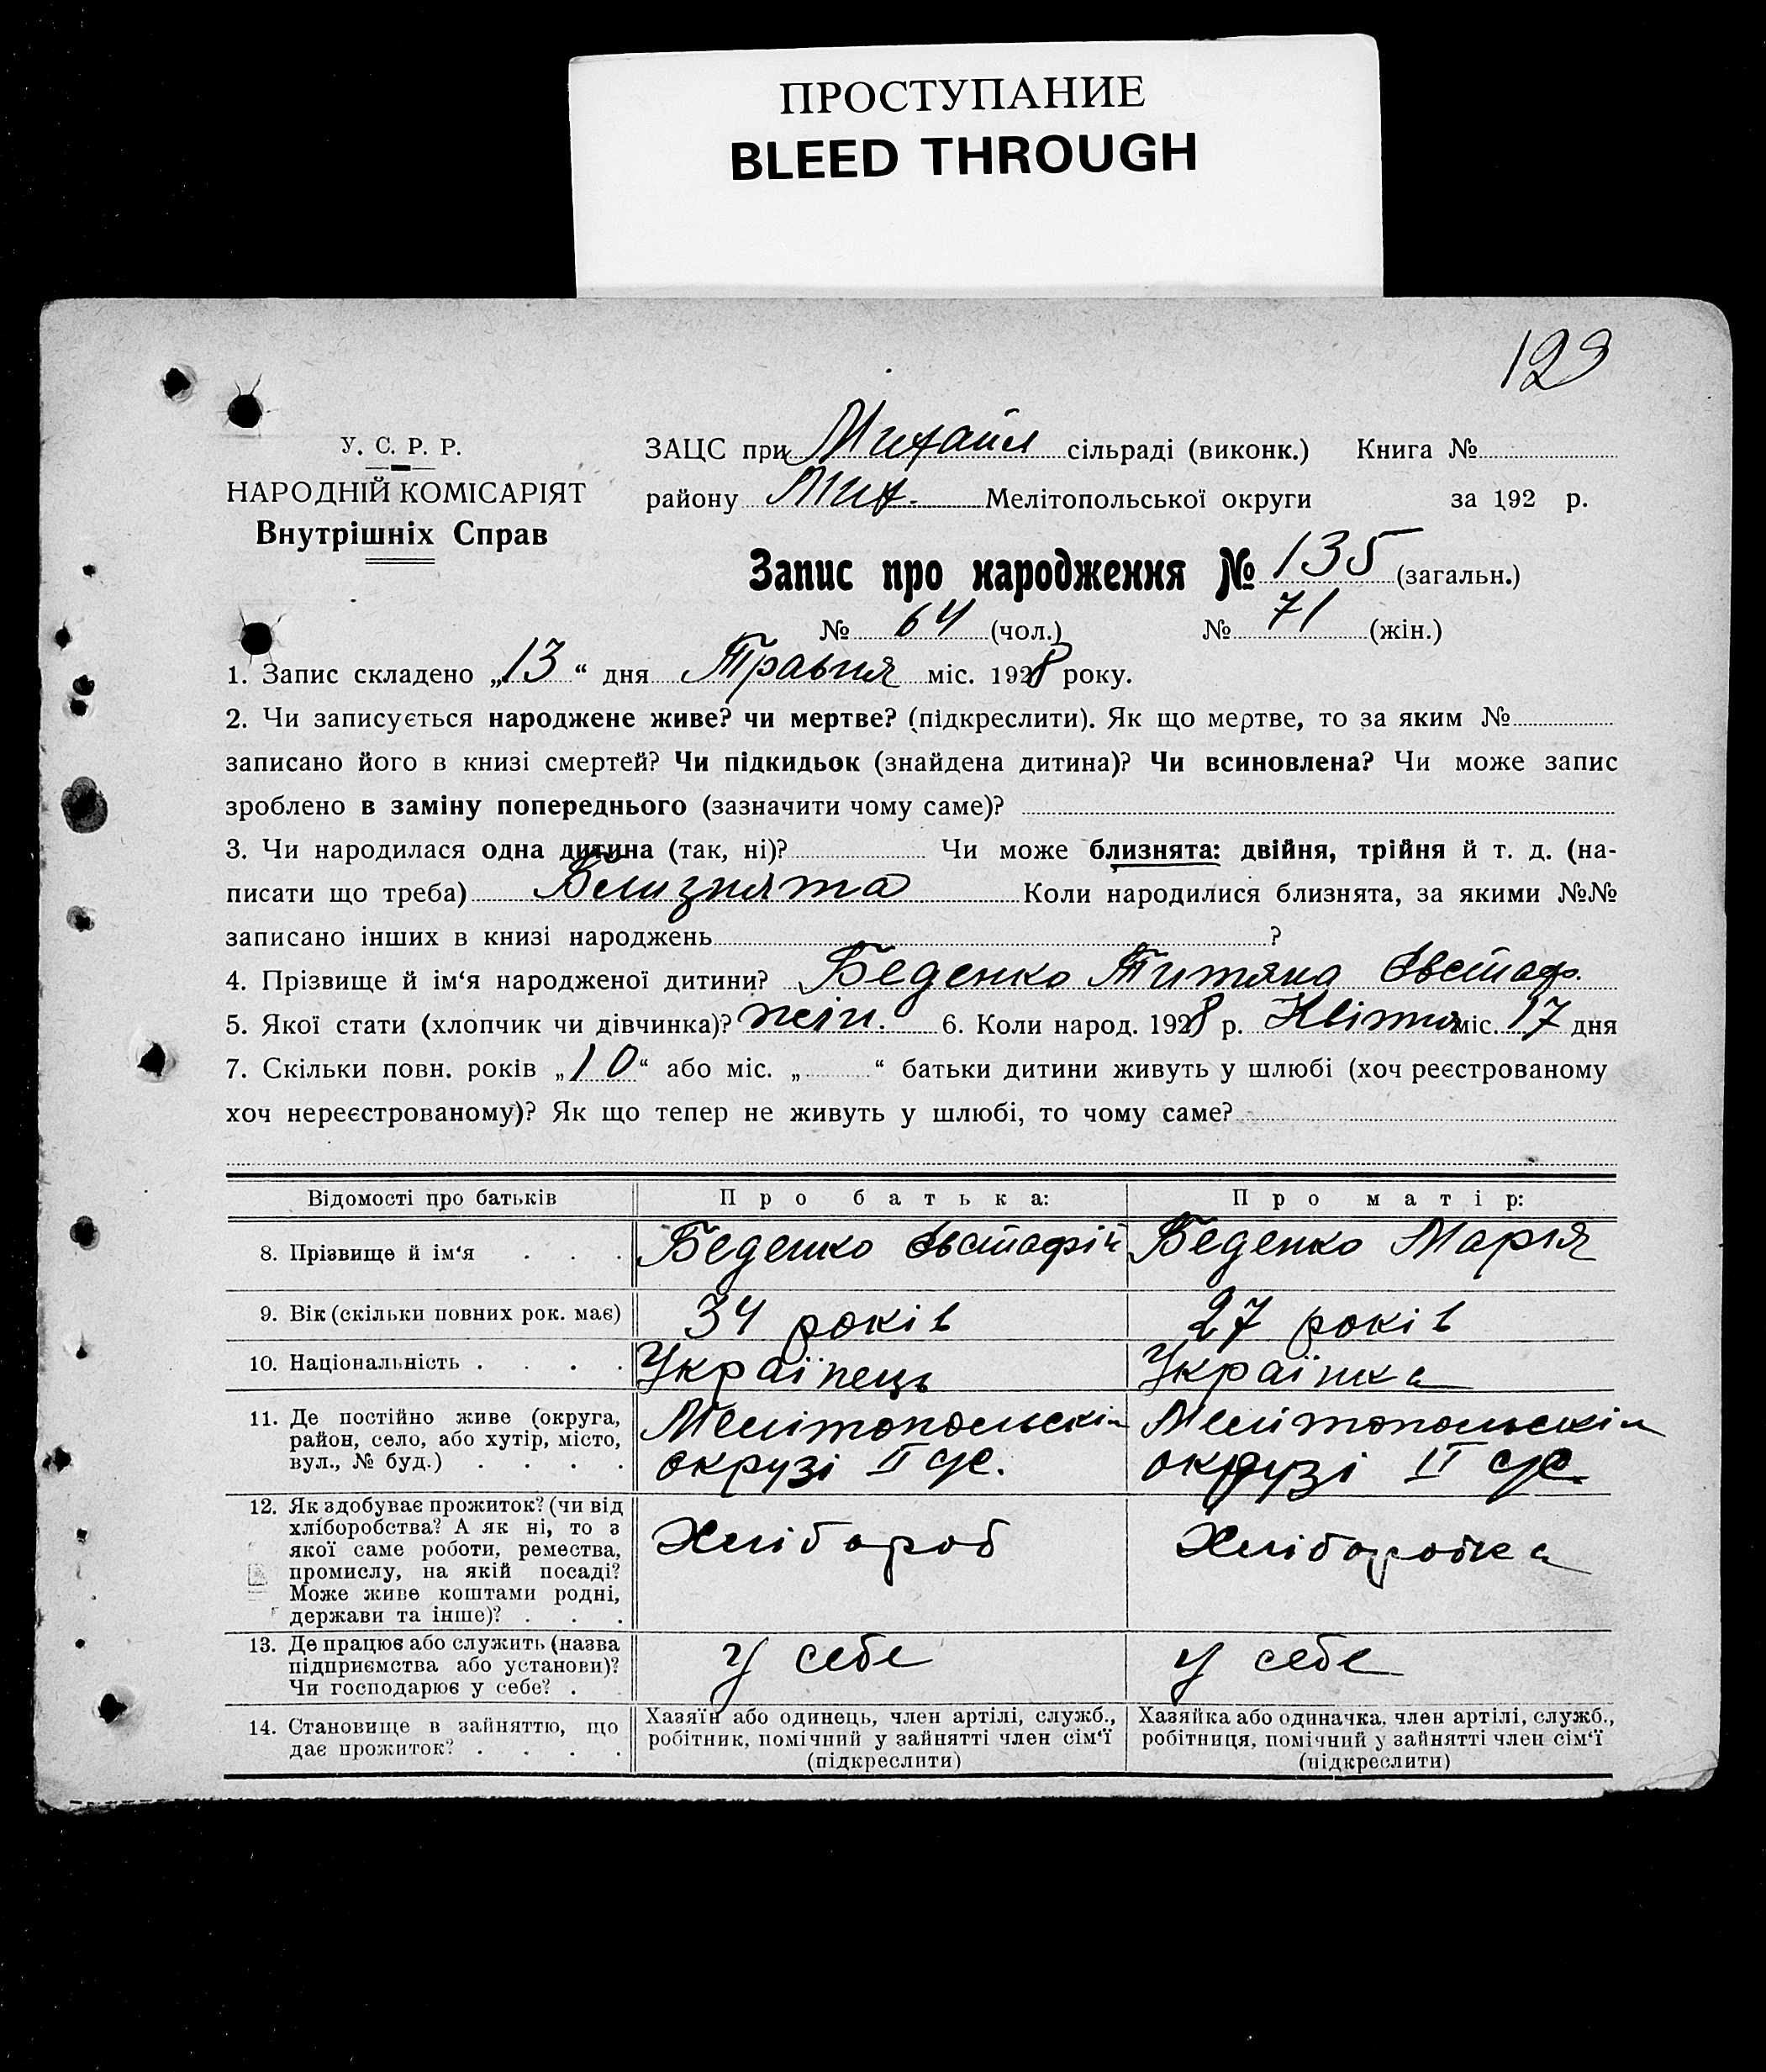 ПРОСТУПАНИЕ
BLEED THROUGH
123
У. С. Р. Р.
НАРОДНІЙ КОМІСАРІЯТ
Внутрішніх Справ
ЗАЦС при Михайл сільраді (виконк.) Книга №
району Мих. Мелітопольської округи за 192 р.
Запис про народження № 135 (загальн.)
№ 64 (чол.) № 71 (жін.)
1. Запис складено „13“ дня Травня міс. 1928 року.
2. Чи записується народжене живе? чи мертве? (підкреслити). Як що мертве, то за яким №
записано його в книзі смертей? Чи підкидьок (знайдена дитина)? Чи всиновлена? Чи може запис
зроблено в заміну попереднього (зазначити чому саме)?
3. Чи народилася одна дитина (так, ні)? Чи може близнята: двійня, трійня й т. д. (на-
писати що треба) Близнята Коли народилися близнята, за якими №№
записано інших в книзі народжень ?
4. Прізвище й ім‘я народженої дитини? Беденко Титяна Евстаф.
5. Якої стати (хлопчик чи дівчинка)? жін. 6. Коли народ. 1928 р. Квітня міс. 17 дня
7. Скільки повн. років „10“ або міс. „ “ батьки дитини живуть у шлюбі (хоч реєстрованому
хоч нереєстрованому)? Як що тепер не живуть у шлюбі, то чому саме?
Відомості про батьків Про батька: Про матір:
8. Прізвище й ім‘я . . . Беденко Евстафій Беденко Марія
9. Вік (скільки повних рок. має) 34 років 27 років
10. Національність . . . . Українець Українка
11. Де постійно живе (округа,
район, село, або хутір, місто,
вул., № буд.) . . . .
Мелітопольскій
окрузі II
Мелітопольскій
окрузі II
12. Як здобуває прожиток? (чи від
хліборобства? А як ні, то з
якої саме роботи, ремества,
промислу, на якій посаді?
Може живе коштами родні,
держави та інше)? . . .
Хлібороб Хліборобка
13. Де працює або служить (назва
підприємства або установи)?
Чи господарює у себе? .
У себе У себе
14. Становище в зайняттю, що
дає прожиток? . . . .
Хазяїн або одинець, член артілі, служб.,
робітник, помічний у зайнятті член сім‘ї
(підкреслити)
Хазяйка або одиначка, член артілі, служб.,
робітниця, помічний у зайнятті член сім‘ї
(підкреслити)